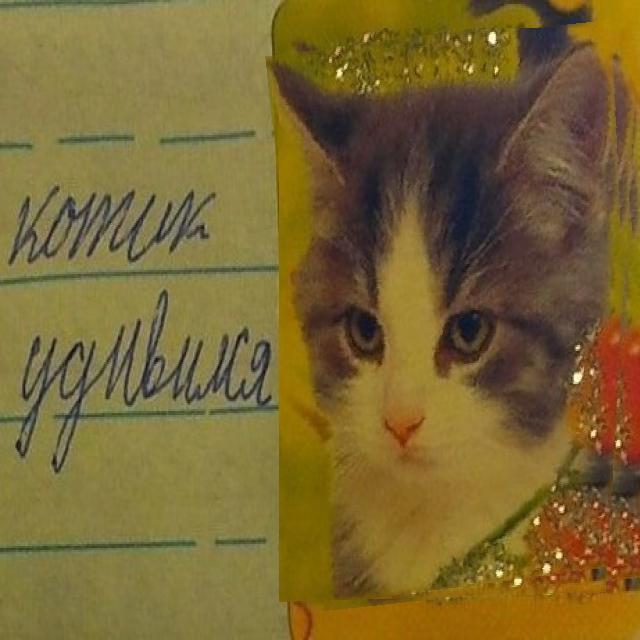 котик
удивился